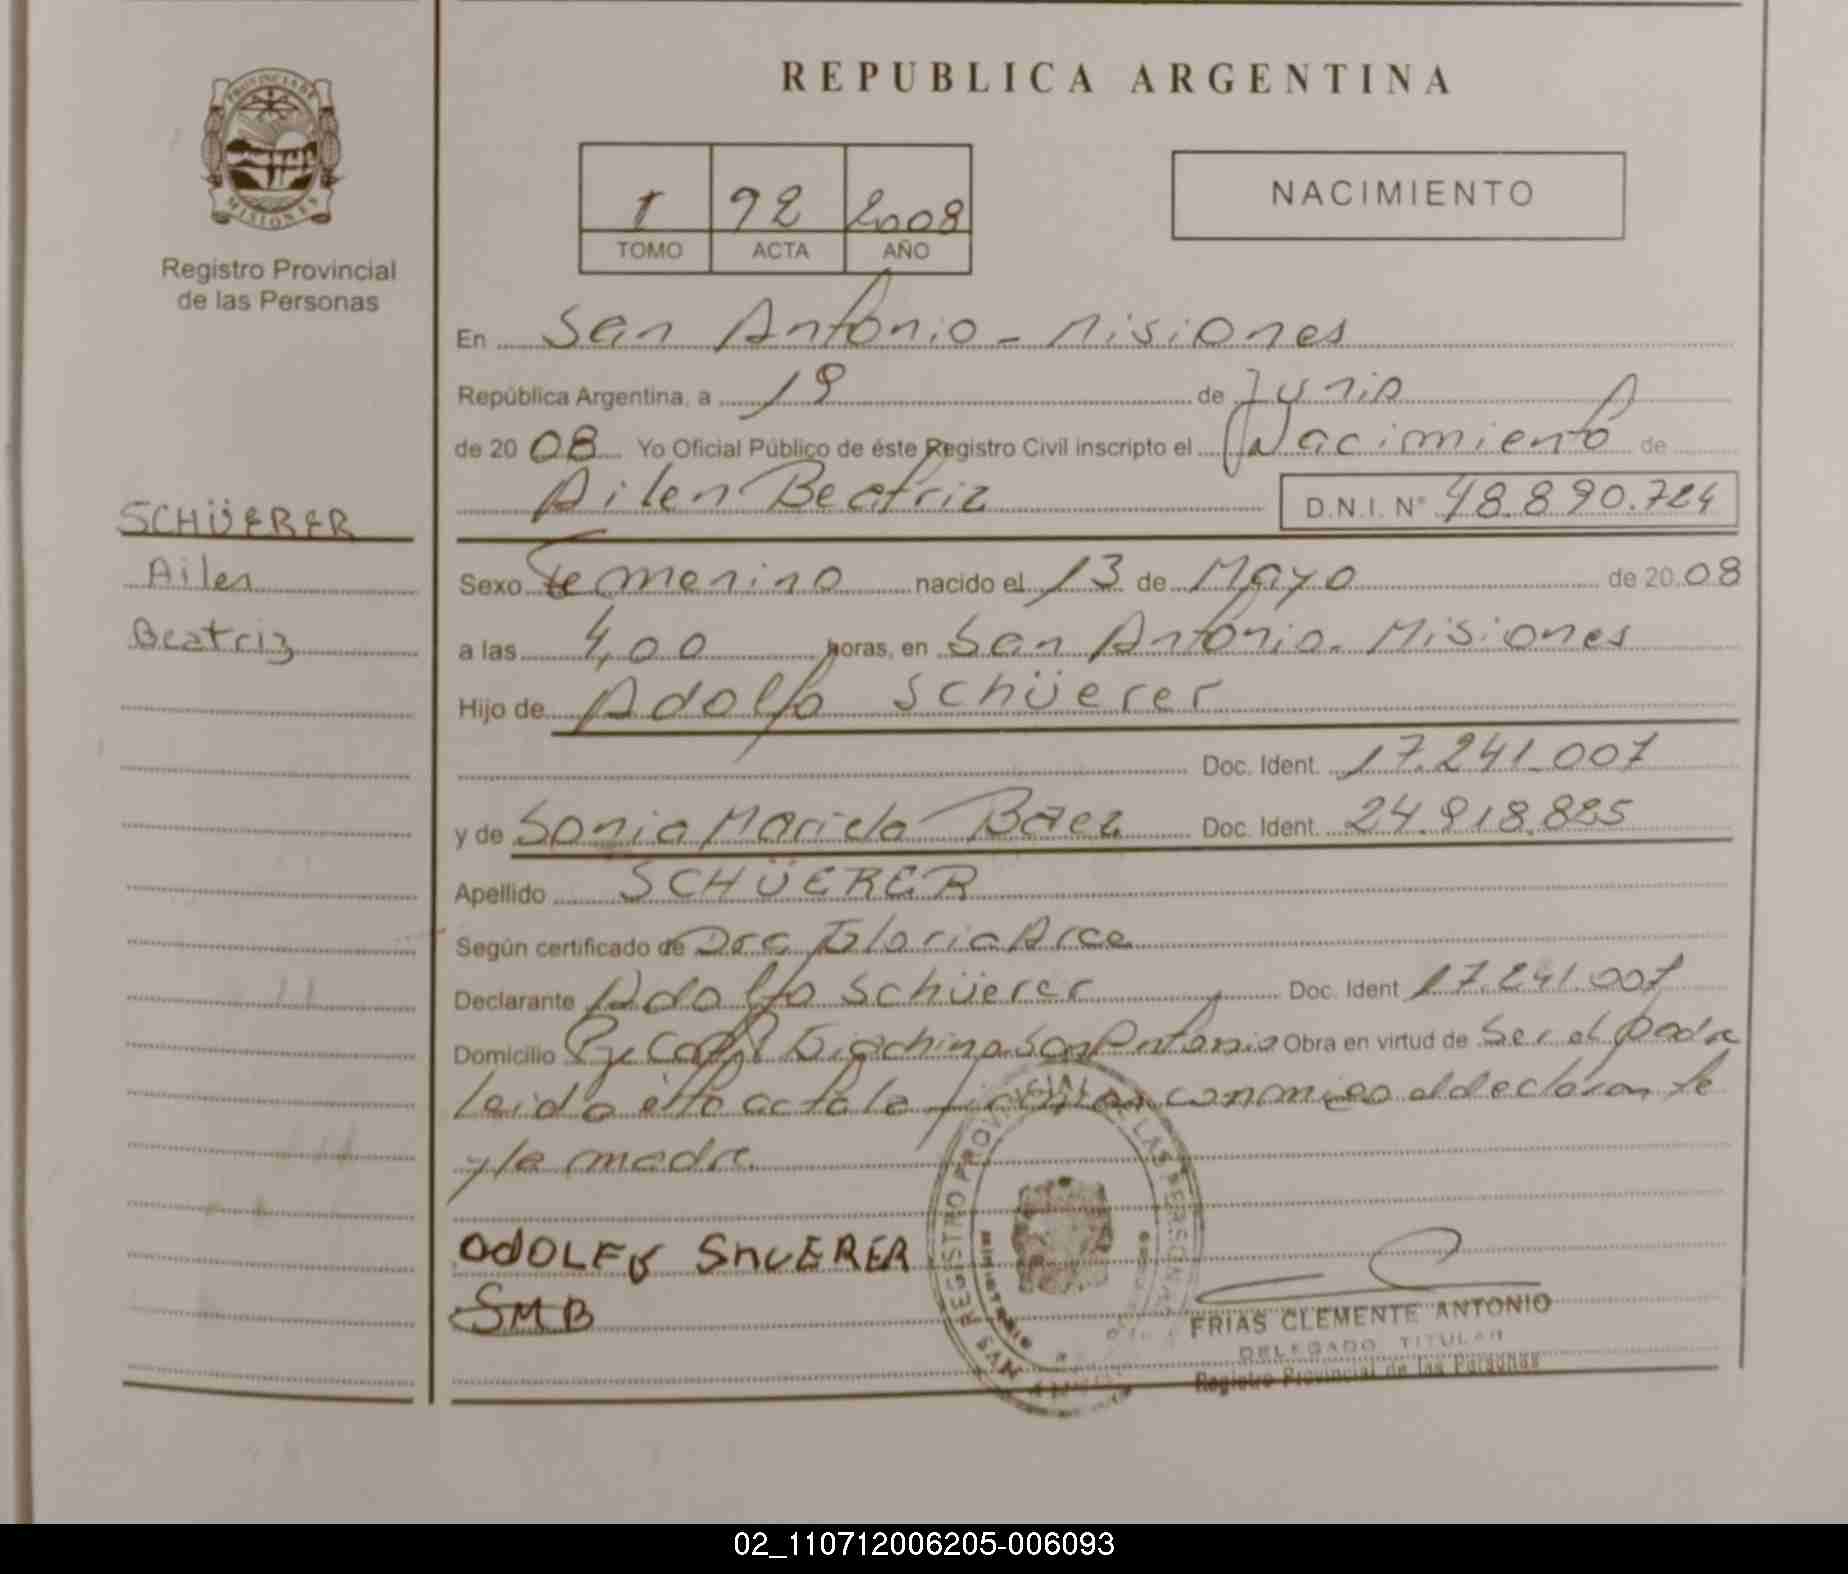 REPUBLICA ARGENTINA
PROVINCIA DE
MISIONES
Registro Provincial
de las Personas
1 92 2008
TOMO ACTA AÑO
NACIMIENTO
En San Antonio - Misiones
República Argentina, a 19 de Junio
de 2008 Yo Oficial Público de éste Registro Civil inscripto el Nacimiento de
Ailen Beatriz D.N.I. N° 48.890.724
SCHÜERER
Ailen
Beatriz
Sexo Femenino nacido el 13 de Mayo de 2008
a las 4,00 horas, en San Antonio. Misiones
Hijo de Adolfo Schüerer
Doc. Ident. 17.241.007
y de Sonia Mariela Báez Doc. Ident. 24.918.885
Apellido SCHÜERER
Según certificado de Dra Gloria Arce
Declarante Adolfo Schüerer Doc. Ident 17.241.007
Domicilio Giachino San Antonio Obra en virtud de Ser el padre
Leida esta acta la firman conmigo el declarante
y la madre.
ODOLFO SHUERER
SMB
REGISTRO PROVINCIAL DE LAS PERSONAS
FRIAS CLEMENTE ANTONIO
DELEGADO TITULAR
Registro Provincial de las Personas
02_110712006205-006093